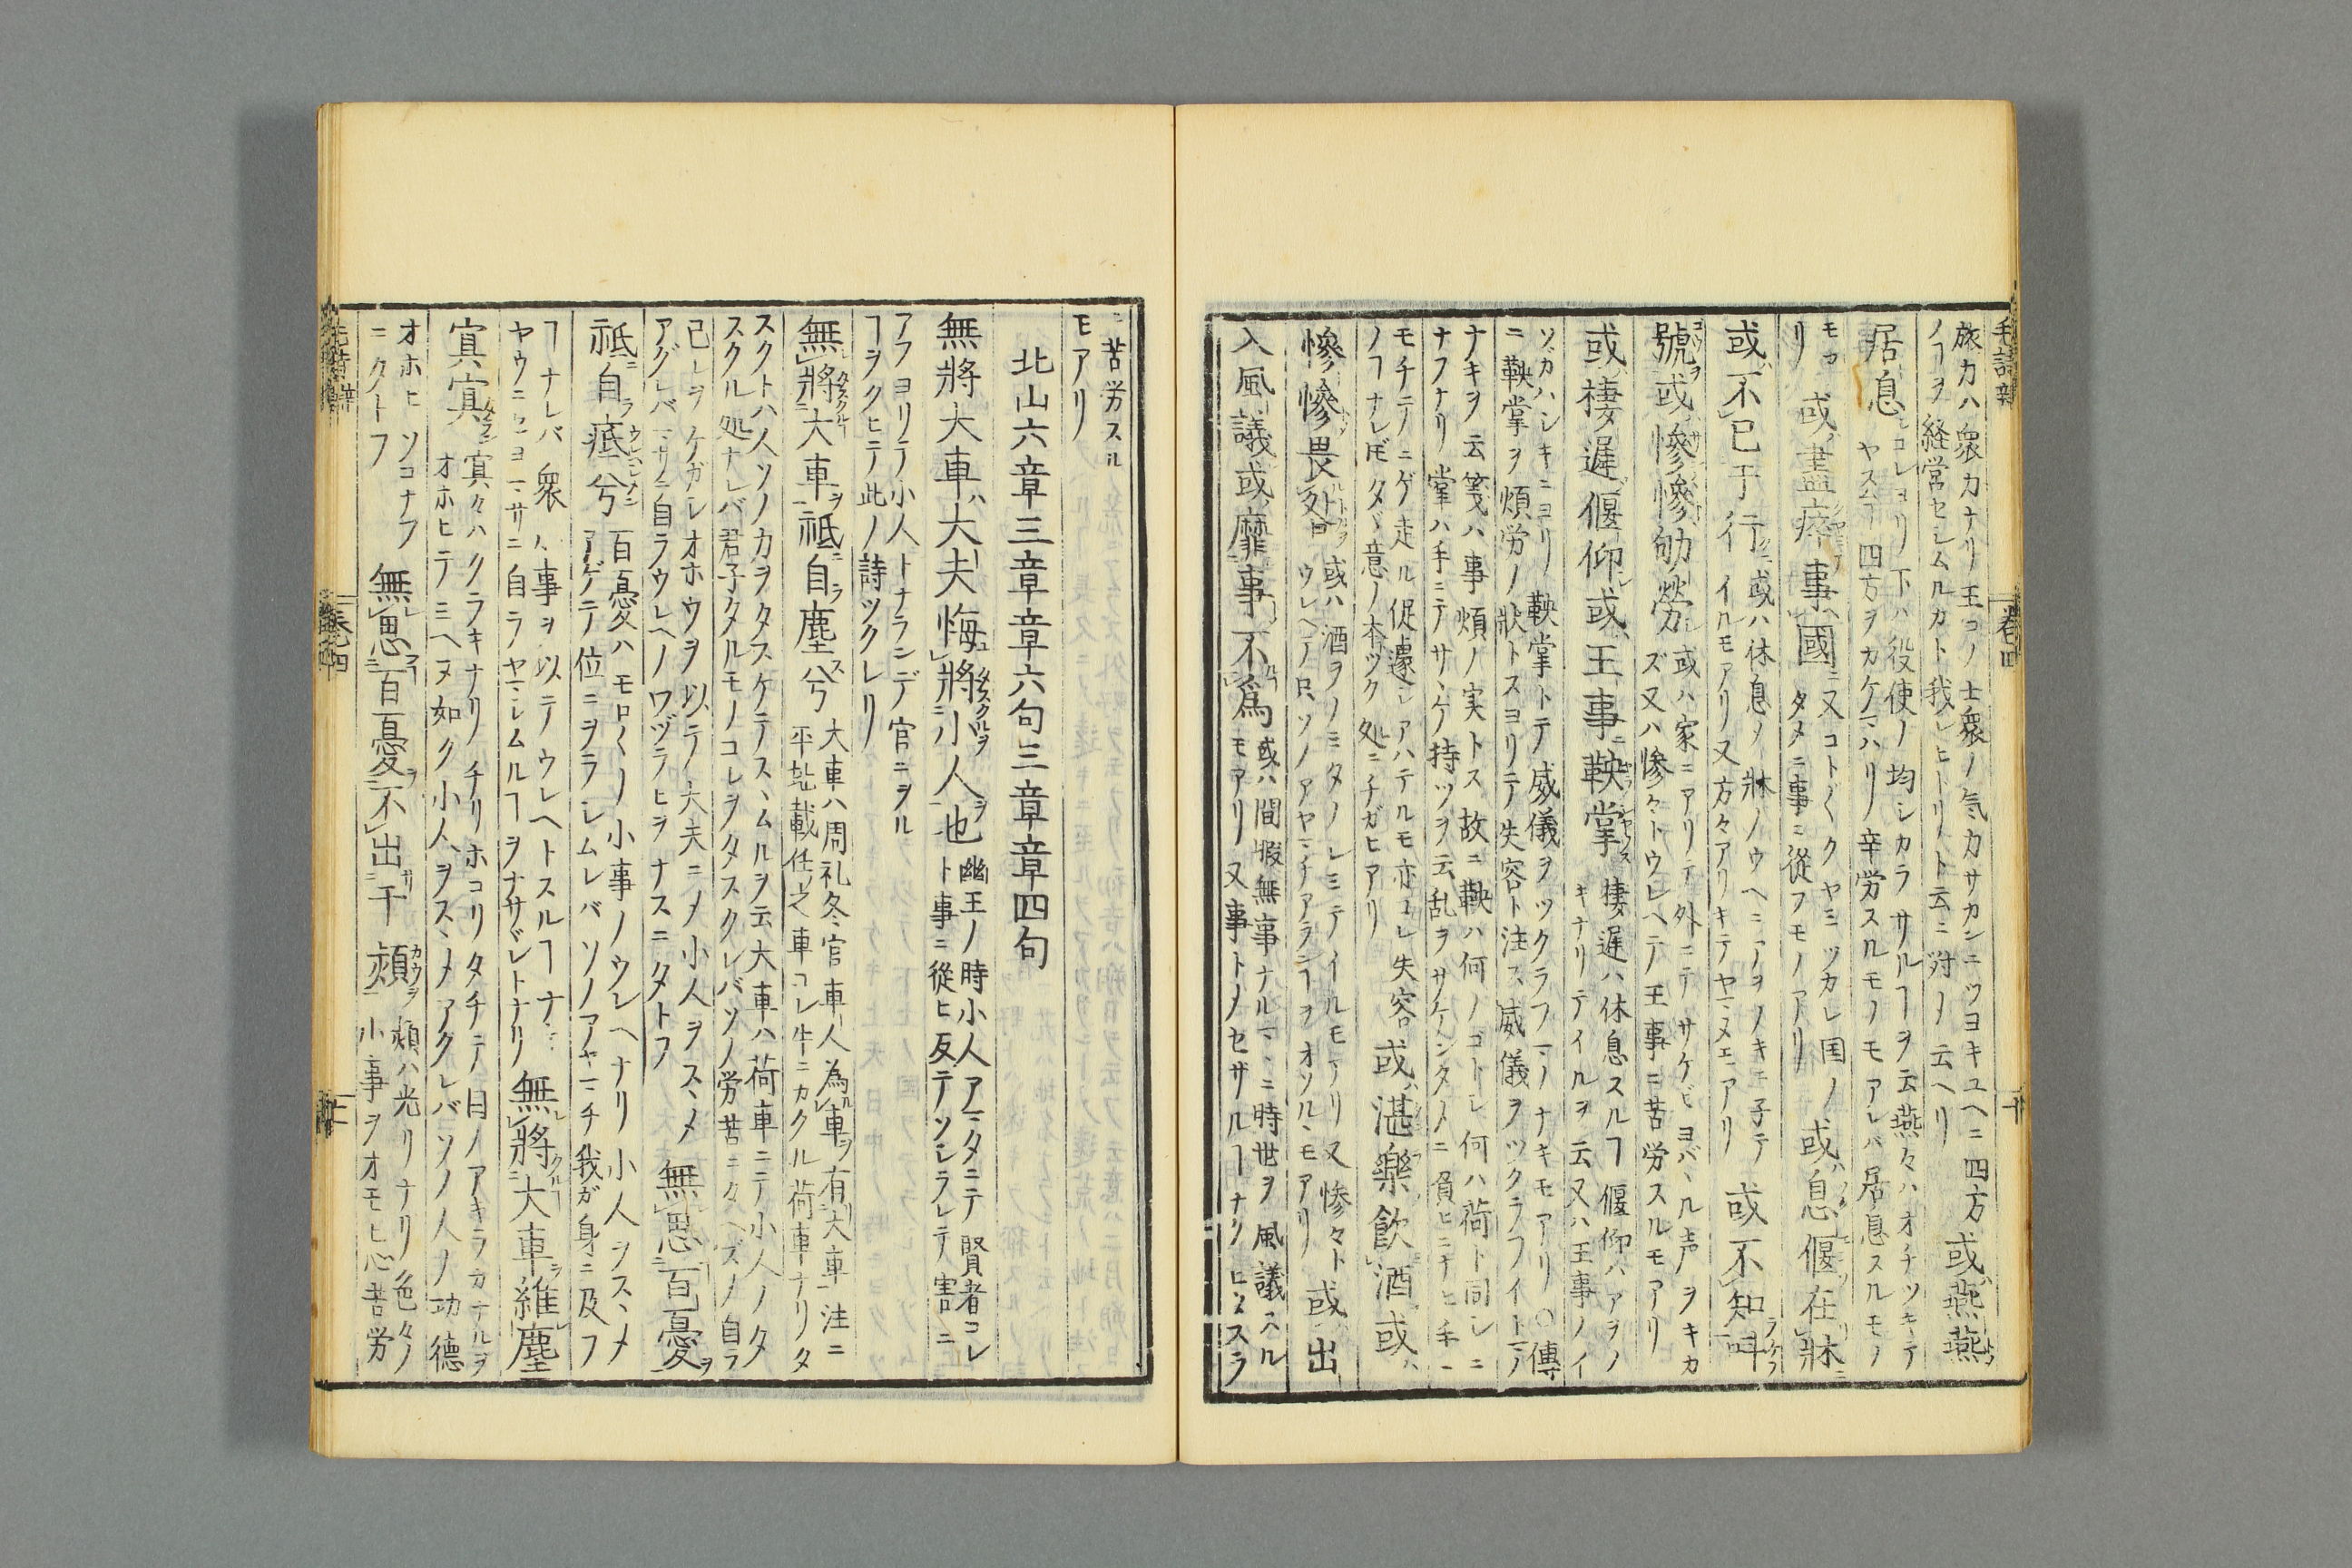 旅力ハ衆力ナリ王コノ士衆ノ気力サカンニツヨキユヘニ四方
ノヿヲ経営セシムルカト我レヒトリト云ニ対ノ云ヘリ
或燕燕
居息
コレヨリ下ハ役使ノ均シカラサルヿヲ云燕々ハオチツキテ
ヤスムヿ四方ヲカケマハリノ辛労スルモノモアレバ居息スルモノ
モアリ
或盡瘁事國
又コト〴〵クヤミツカレ国ノ
タメニ事ニ從フモノアリ
或息偃在牀
或不已于行
或ハ休息ノ牀ノウヘニ
イルモアリ又方々アリキテヤマヌモアリ
或不知叫
號或慘慘劬勞
或ハ家ニアリテ外ニテサケビヨバヽル声ヲキカ
ズ又ハ慘々トウレヘテ王事ニ苦労スルモアリ
或棲遲偃仰或王事鞅掌
棲遲ハ休息スルヿ偃仰ハアヲノ
キナリテイルヲ云又ハ王事ノイ
ソカハシキニヨリ鞅掌トテ威儀ヲツクラフマノナキモアリ○傳
ニ鞅掌ヲ煩労ノ狀トスヨリテ失容ト注ス威儀ヲツクラフイトマノ
ナキヲ云箋ハ事煩ノ実トス故ニ鞅ハ何ノゴトシ何ハ荷ト同シニ
ナフナリ掌ハ手ニテサヽケ持ツヲ云乱ヲサケンタメニ負ヒニナヒ手ニ
モチテノニゲ走ル促遽シアハテルモ亦コレ失容
ノヿナレ𪜈タヾ意ノ本ツク処ニチガヒアリ
或湛樂飲酒或
慘慘畏咎
或ハ酒ヲノミタノシミテイルモアリ又慘々ト
ウレヘテ只ソノアヤマチアランヿヲオソルヽモアリ
或出
入風議或靡事不爲
或ハ間暇無事ナルマヽニ時世ヲ風議スル
モアリ又事トメセサルヿナクロスラ
ニ苦労スル
モアリ
北山六章三章章六句三章章四句
無將大車ハ大夫悔將小人也
幽王ノ時小人アマタニテ賢者コレ
ト事ニ從ヒ反テソシラレテ害ニ
アフヨリテ小人トナランデ官ニヲル
ヿヲクヒテ此ノ詩ツクレリ
無將大車祗自塵兮
大車ハ周礼冬官車人為車有大車注ニ
平地載任之車コレ牛ニカクル荷車ナリタ
スクトハ人ソノ力ヲタスケテスヽムルヲ云大車ハ荷車ニテ小人ノタ
スクル処ナレバ君子タルモノコレヲタスクレバソノ労苦ニタヘズノ自ラ
已レヲケガレオホウヲ以テノ大夫ニノ小人ヲスヽメ
アグレバマサニ自ラウレヘノワヅラヒヲナスニタトフ
無思百憂
祗自疧兮
百憂ハモロ〳〵ノ小事ノウレヘナリ小人ヲスヽメ
アゲテ位ニヲラシムレバソノアヤマチ我ガ身ニ及フ
ヿナレバ衆小事ヲ以テウレヘトスルヿナ
ヤウニセヨマサニ自ラヤマシムルヿヲナサヾレトナリ
無將大車維塵
冥冥
冥々ハクラキナリチリホコリタチテ目ノアキラカナルヲ
オホヒテミヘヌ如ク小人ヲスヽメアクレバソノ人ノ功德
オホヒソコナフ
ニタトフ
無思百憂不出于熲
熲ハ光リナリ色々ノ
小事ヲオモヒ心苦労